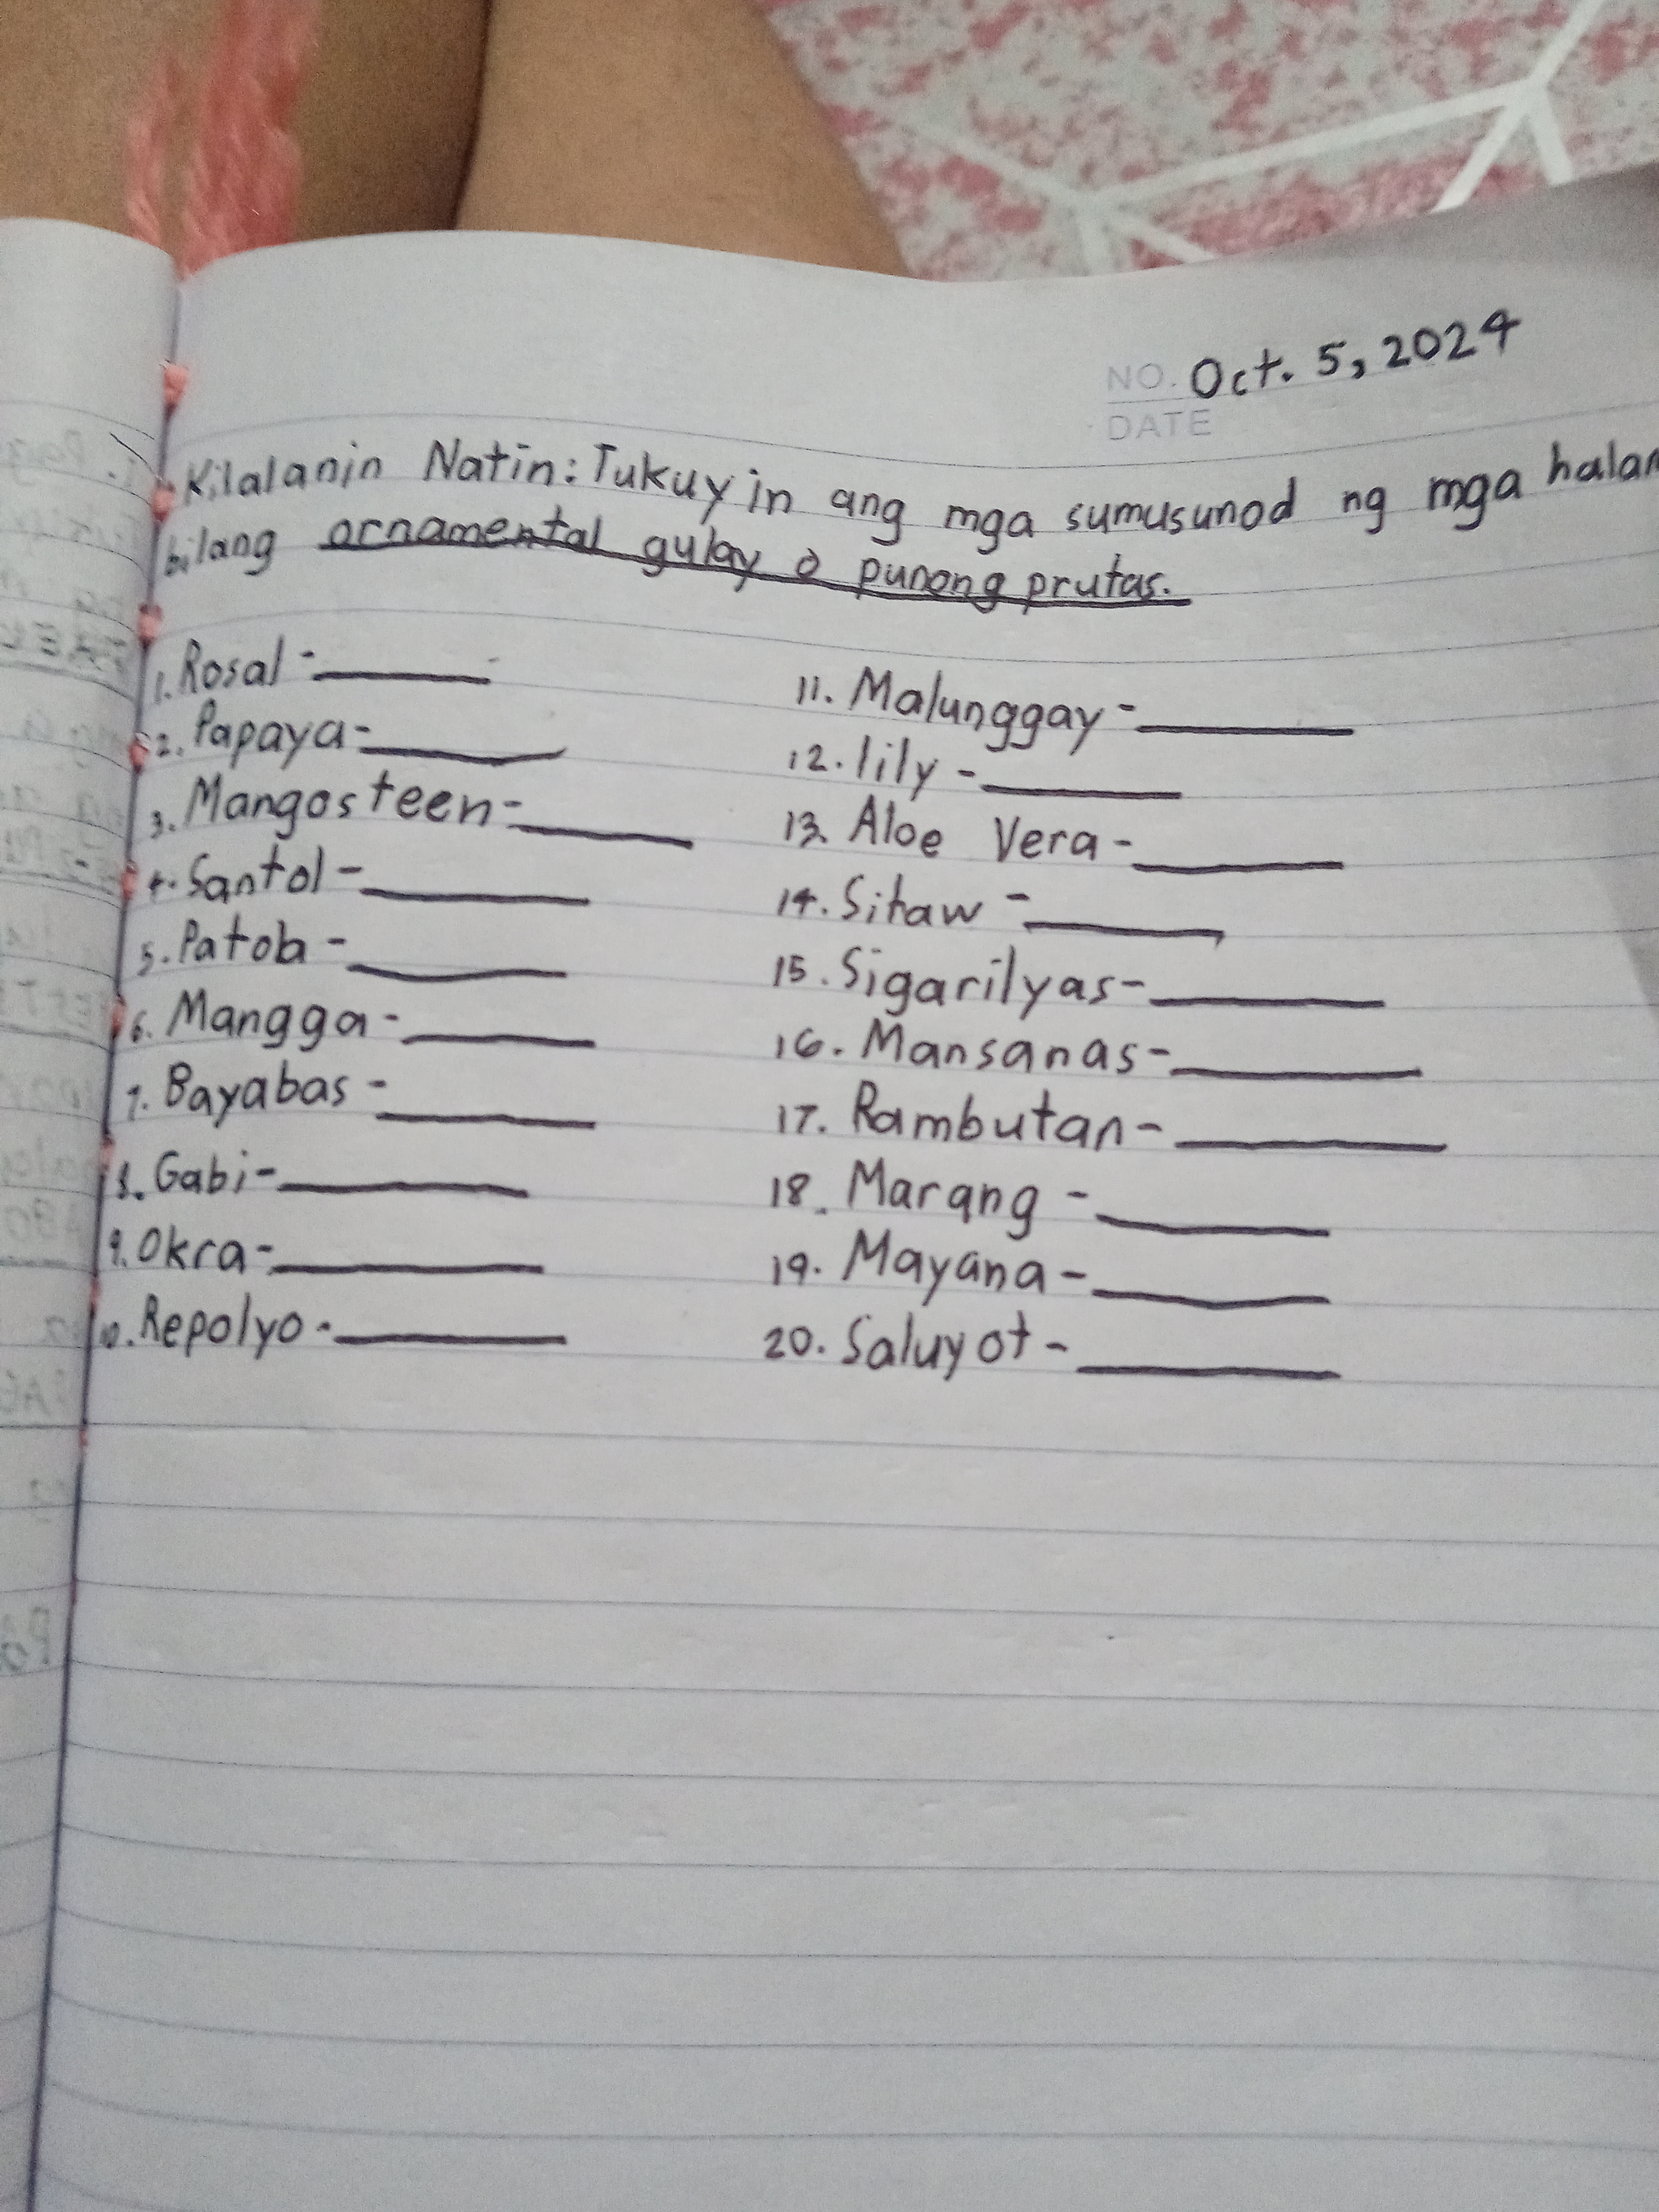 NO. Oct. 5, 2024
DATE
Kilalanin Natin: Tukuyin ang mga sumusunod ng mga halam
bilang ornamental gulay o punong prutas.
1. Rosal - ______
2. Papaya - ______
3. Mangosteen - ______
4. Santol - ______
5. Patola - ______
6. Mangga - ______
7. Bayabas - ______
8. Gabi - ______
9. Okra - ______
10. Repolyo - ______
11. Malunggay - ______
12. lily - ______
13. Aloe Vera - ______
14. Sitaw - ______
15. Sigarilyas - ______
16. Mansanas - ______
17. Rambutan - ______
18. Marang - ______
19. Mayana - ______
20. Saluyot - ______